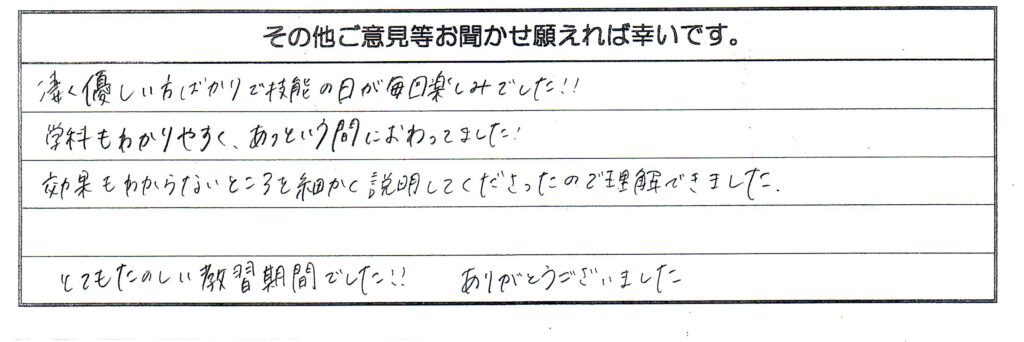 その他ご意見等お聞かせ願えれば幸いです。
凄く優しい方ばかりで技能の日が毎回楽しみでした!!
学科もわかりやすく、あっという間におわってました!
効果もわからないところを細かく説明してくださったので理解できました.
とてもたのしい教習期間でした!! ありがとうございました